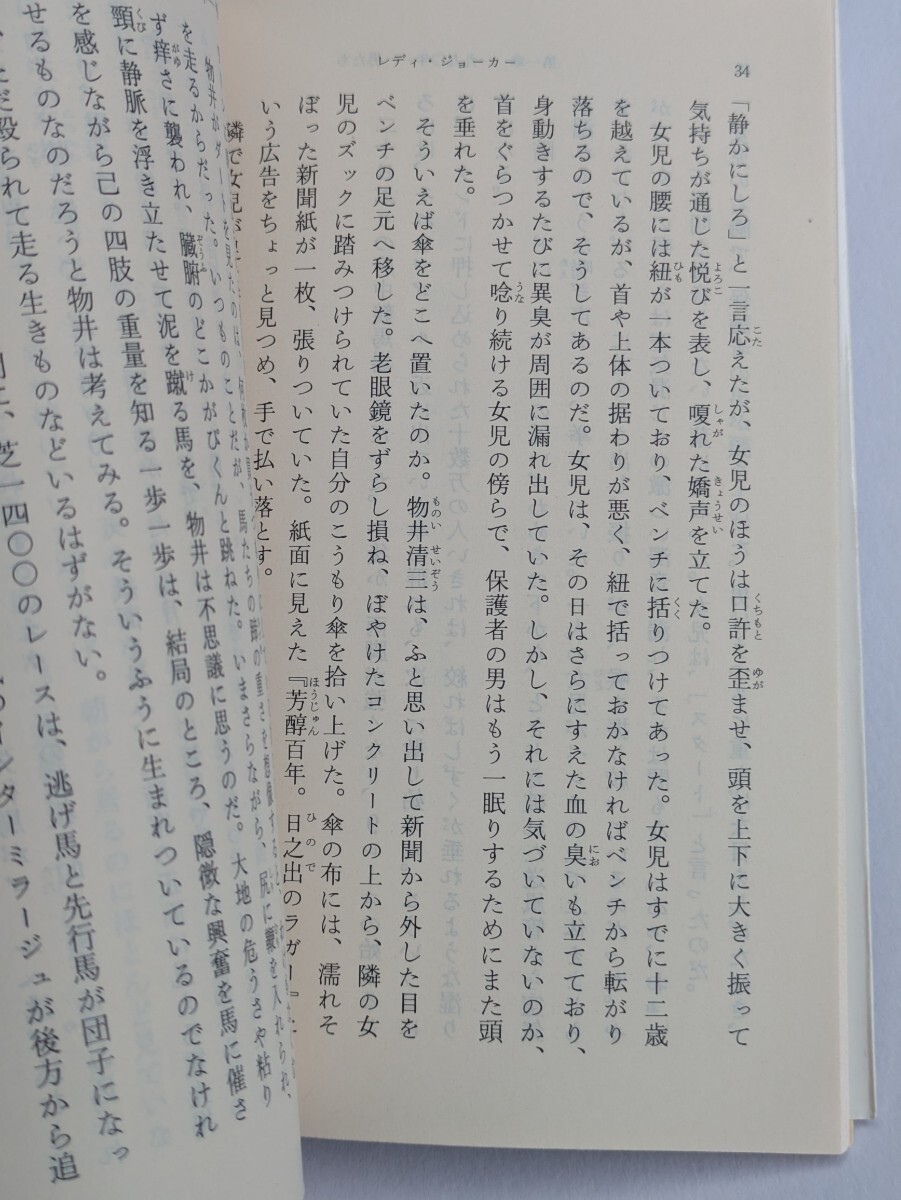 34
レディ・ジョーカー
「静かにしろ」と一言応えたが、女児のほうは口許を歪ませ、頭を上下に大きく振って
気持ちが通じた悦びを表し、嗄れた嬌声を立てた。
女児の腰には紐が一本ついており、ベンチに括りつけてあった。女児はすでに十二歳
を越えているが、首や上体の据わりが悪く、紐で括っておかなければベンチから転がり
落ちるので、そうしてあるのだ。女児は、その日はさらにすえた血の臭いも立てており、
身動きするたびに異臭が周囲に漏れ出していた。しかし、それには気づいていないのか、
首をぐらつかせて唸り続ける女児の傍らで、保護者の男はもう一眠りするためにまた頭
を垂れた。
そういえば傘をどこへ置いたのか。物井清三は、ふと思い出して新聞から外した目を
ベンチの足元へ移した。老眼鏡をずらし損ね、ぼやけたコンクリートの上から、隣の女
児のズックに踏みつけられていた自分のこうもり傘を拾い上げた。傘の布には、濡れそ
ぼった新聞紙が一枚、張りついていた。紙面に見えた『芳醇百年。日之出のラガー』と
いう広告をちょっと見つめ、手で払い落とす。
隣で女児が
物井が
を走るからだった。いつものことだが、馬たちの蹄の重さを想像する
ず痒さに襲われ、臓腑のどこかがびくんと跳ねた。いまさらながら、尻に鞭を入れられ、
頸に静脈を浮き立たせて泥を蹴る馬を、物井は不思議に思うのだ。大地の危うさや粘り
を感じながら己の四肢の重量を知る一歩一歩は、結局のところ、隠微な興奮を馬に催さ
せるものなのだろうと物井は考えてみる。そういうふうに生まれついているのでなけれ
ただ殴られて走る生きものなどいるはずがない。
芝一四〇〇のレースは、逃げ馬と先行馬が団子になっ
インターミラージュが後方から追